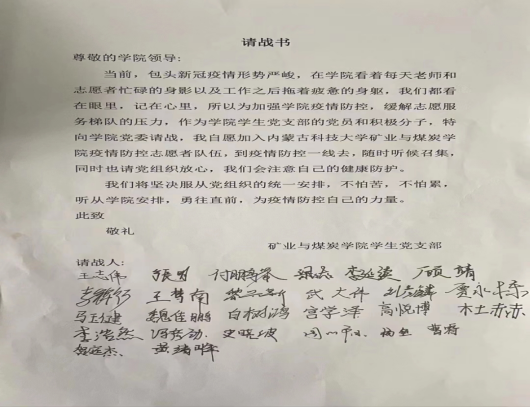 请战书
尊敬的学院领导:
当前，包头新冠疫情形势严峻，在学院看着每天老师和
志愿者忙碌的身影以及工作之后拖着疲惫的身躯，我们都看
在眼里，记在心里，所以为加强学院疫情防控，缓解志愿服
务梯队的压力，作为学院学生党支部的党员和积极分子，特
向学院党委请战，我自愿加入内蒙古科技大学矿业与煤炭学
院疫情防控志愿者队伍，到疫情防控一线去，随时听候召集，
同时也请党组织放心，我们会注意自己的健康防护。
我们将坚决服从党组织的统一安排，不怕苦，不怕累，
听从学院安排，勇往直前，为疫情防控自己的力量。
此致
敬礼
矿业与煤炭学院学生党支部
请战人:
王志伟
王梦南 武大伟
魏佳鹏 白树鸿 宫学泽 高悦博
李浩然 史晓波